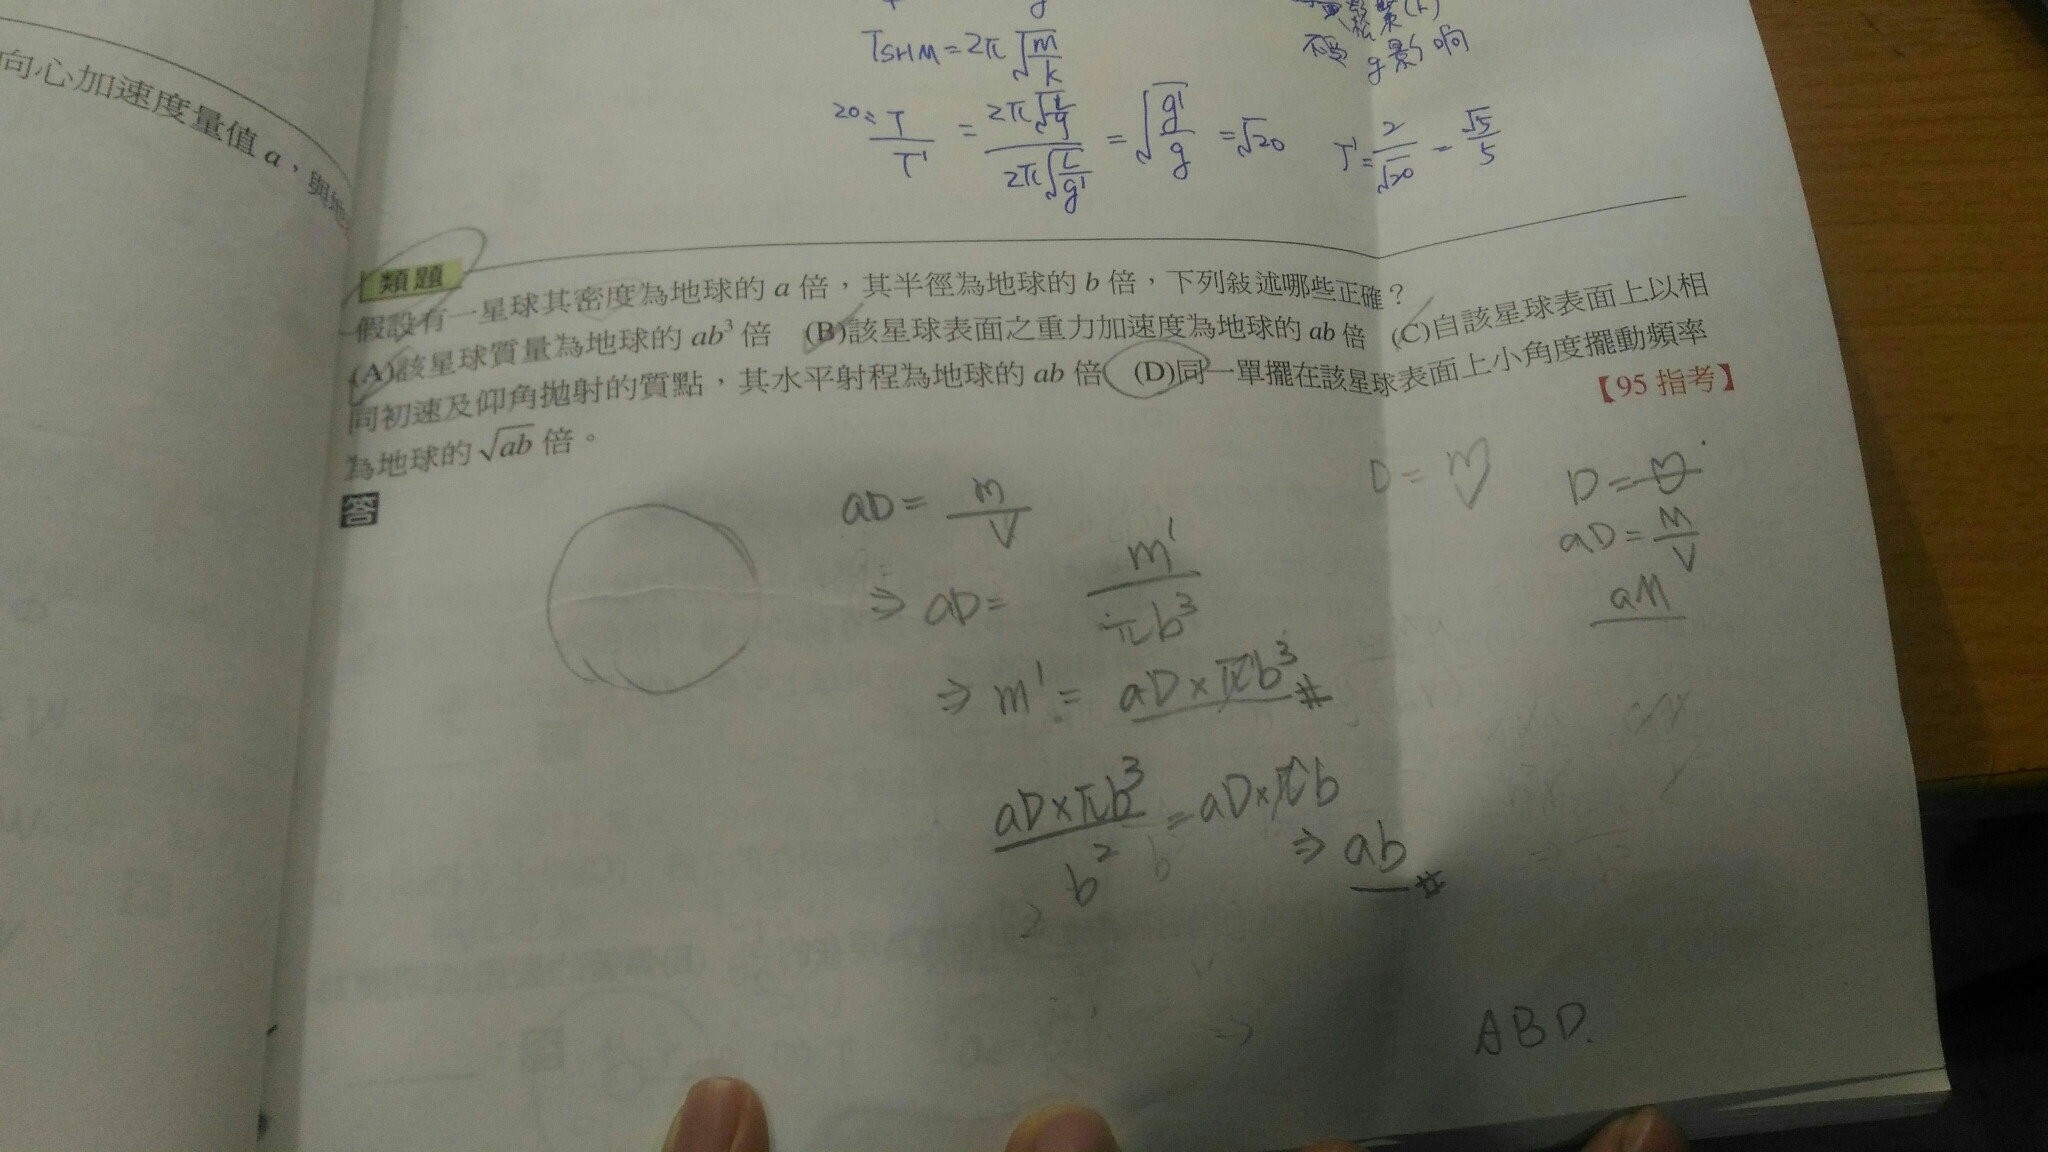 向心加速度量值 a，與地
T_SHM = 2π√(m/k)
不受 g影响
20% T/T' = 2π√(L/g) / 2π√(L/g') = √(g'/g) = √20 T' = 2/√20 = √5/5
類題
假設有一星球其密度為地球的 a 倍，其半徑為地球的 b 倍，下列敍述哪些正確？
(A)該星球質量為地球的 ab³ 倍 (B)該星球表面之重力加速度為地球的 ab 倍 (C)自該星球表面上以相
同初速及仰角拋射的質點，其水平射程為地球的 ab 倍 (D)同一單擺在該星球表面上小角度擺動頻率
為地球的 √ab 倍。
【95 指考】
答
aD = m/V
⇒ aD = m'/πb³
⇒ m' = aD×πb³ #
aD×πb³ / b² = aD×πb
⇒ ab #
D = m/V
D =
aD = M/V
aM
ABD.